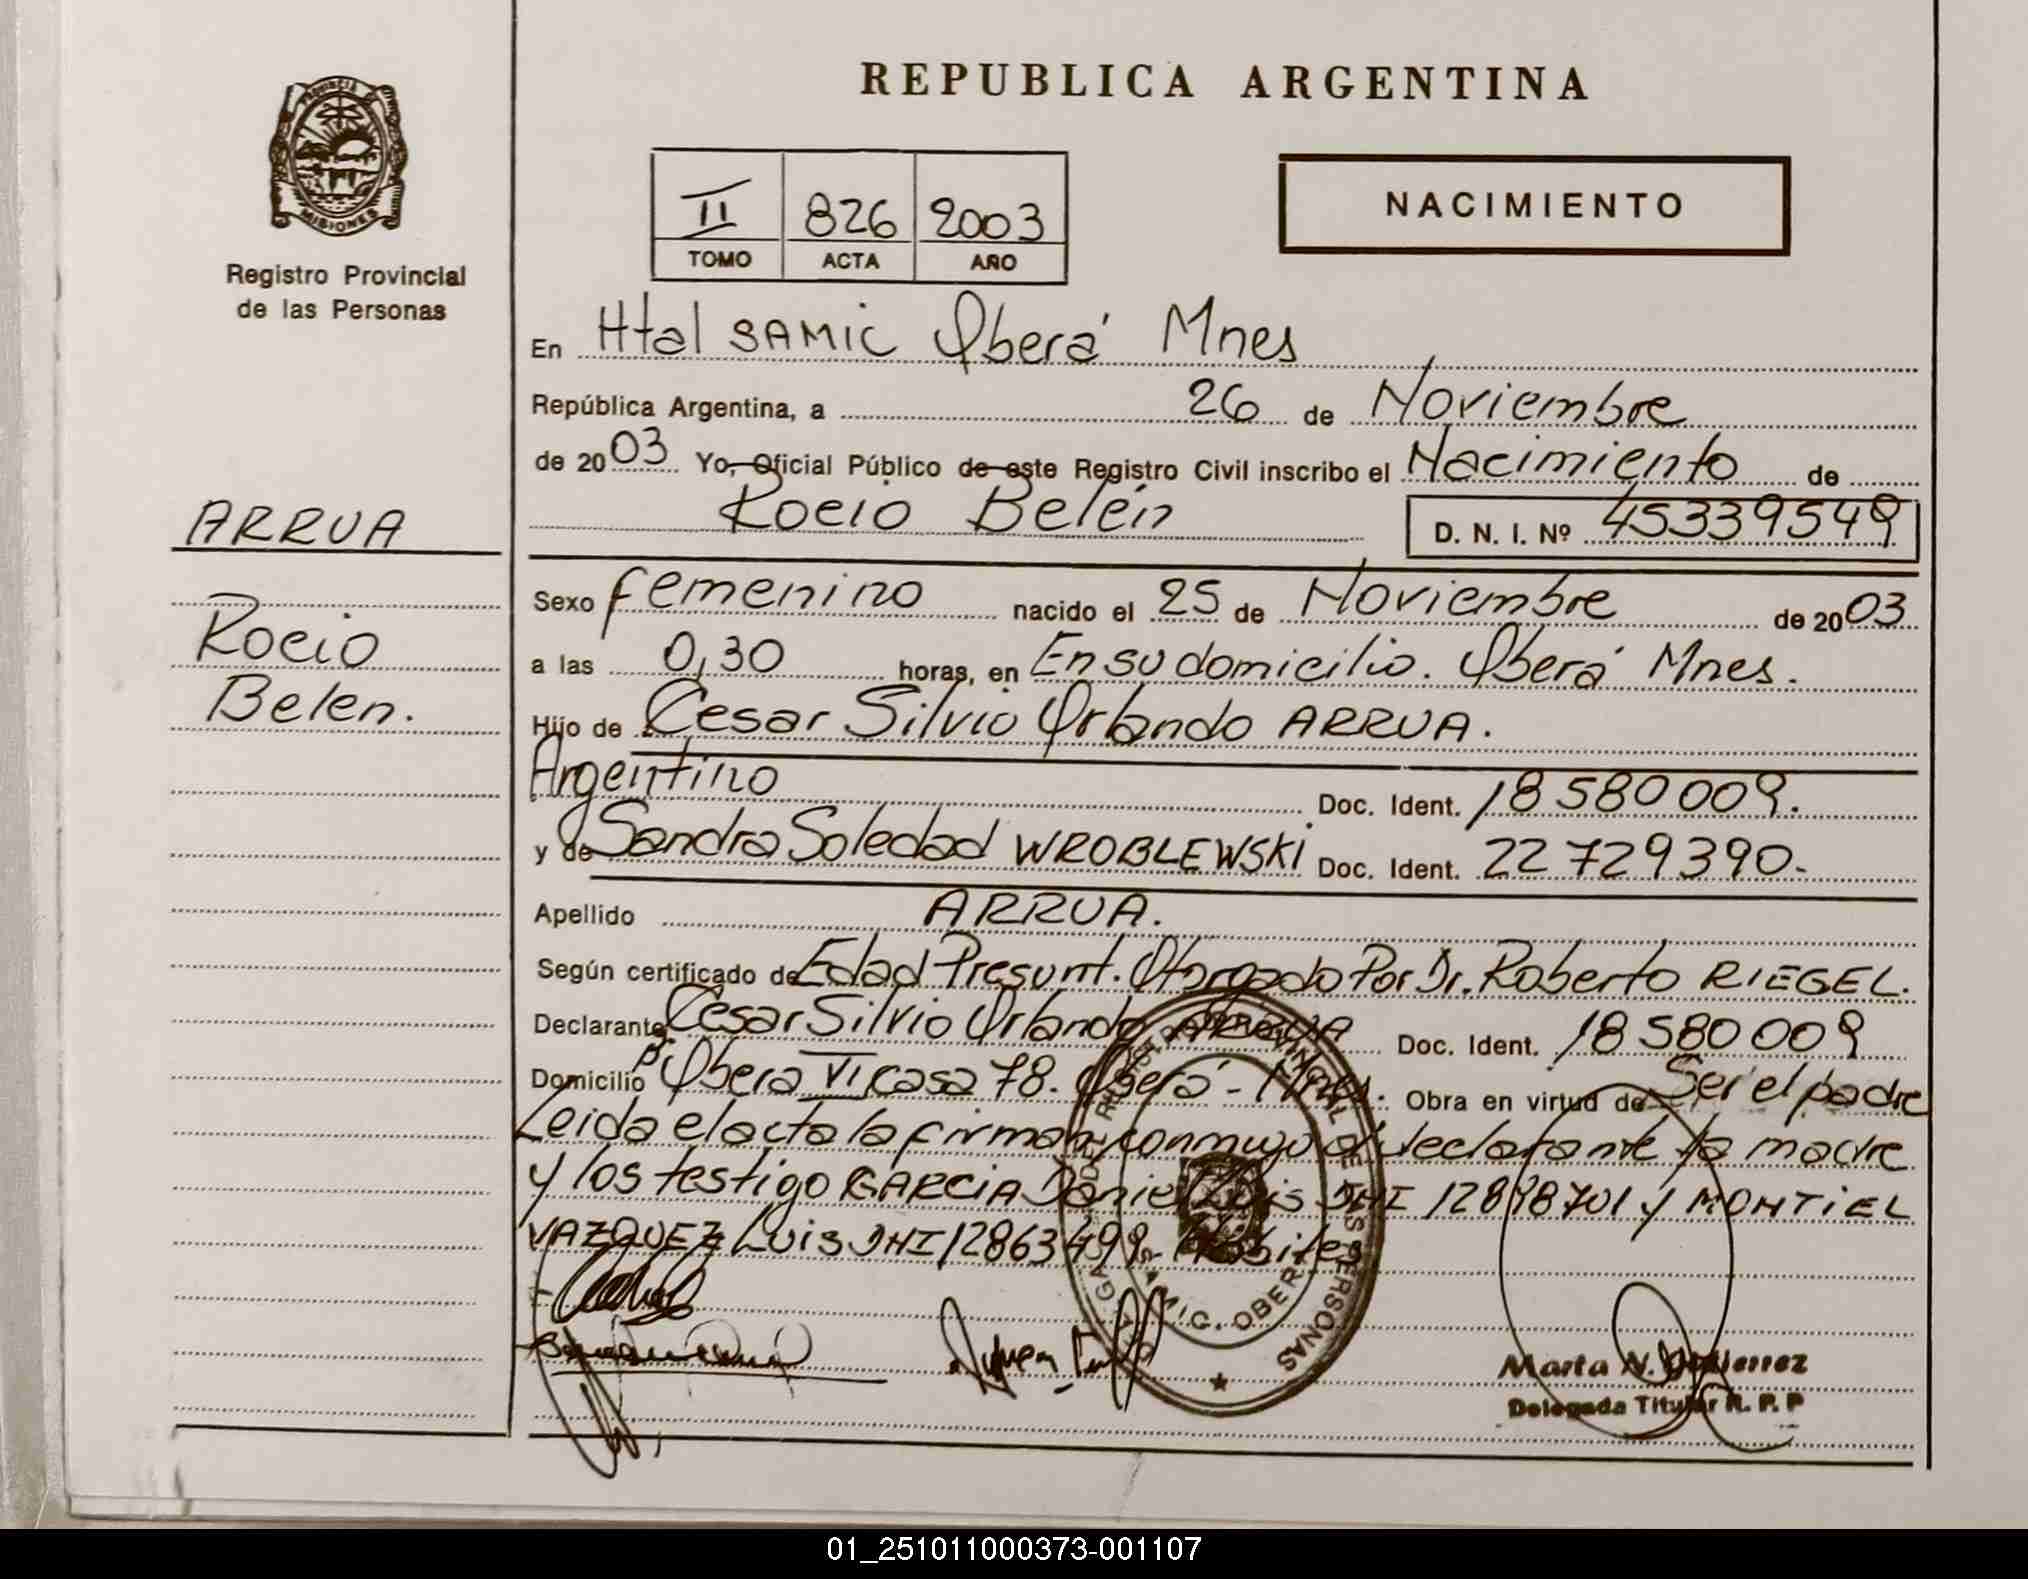 REPUBLICA ARGENTINA
PROVINCIA DE MISIONES
Registro Provincial
de las Personas
II 826 2003
TOMO ACTA AÑO
NACIMIENTO
En Htal SAMIC Oberá Mnes
República Argentina, a 26 de Noviembre
de 2003 Yo, Oficial Público de este Registro Civil inscribo el Nacimiento de
Rocio Belén D. N. I. Nº 45339549
ARRUA
Rocio
Belen.
Sexo femenino nacido el 25 de Noviembre de 2003
a las 0,30 horas, en En su domicilio. Oberá Mnes.
Hijo de Cesar Silvio Orlando ARRUA.
Argentino Doc. Ident. 18580009.
y de Sandra Soledad WROBLEWSKI. Doc. Ident. 22729390-
Apellido ARRUA.
Según certificado de Edad Presunt. Otorgado Por Dr. Roberto RIEGEL.
Declarante Cesar Silvio Orlando ARRUA Doc. Ident. 18580009
Domicilio Bº Obera VI casa 78. Oberá - Mnes. Obra en virtud de Ser el padre
Leida el acta la firman conmigo el declarante la madre
y los testigo GARCIA Daniel Luis DNI y MONTIEL
VAZQUEZ Luis DNI 12863499-
REGISTRO PROVINCIAL DE LAS PERSONAS
OBERA
Marta N. Gutierrez
Delegada Titular R. P. P
01_251011000373-001107